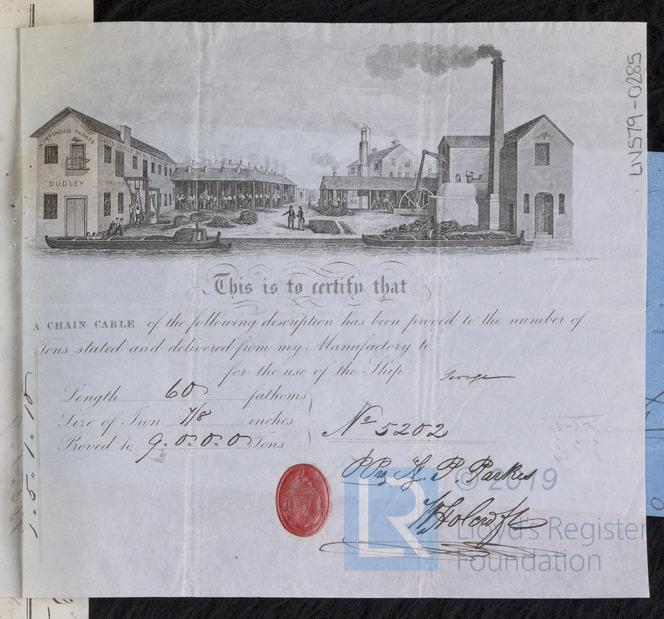 DUDLEY
This is to certify that
A CHAIN CABLE of the following description has been proved to the number of
Tons stated and delivered from my Manufactory to
for the use of the Ship George
Length 60 fathoms
Size of Iron 7/8 inches
Proved to 9.0.0.0 Tons
No 5202
H. P. Parkes
Holcroft
1.5.1.18
LN579-0285
LR
© 2019
Lloyd's Register
Foundation